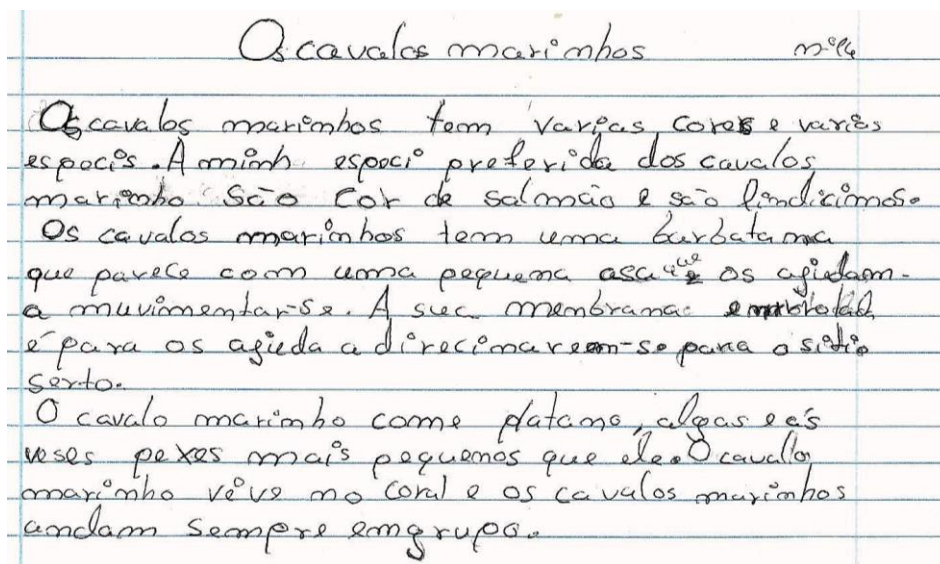 Os cavalos marinhos nº14
Os cavalos marinhos tem varias cores e varios
especis. A minh especi preferida dos cavalos
marinho são cor de salmão e são lindicimos.
Os cavalos marinhos tem uma barbatana
que parece com uma pequena asa que os ajudam
a muvimentar-se. A sua membrana
é para os ajuda a direcimarem-se para o sitio
serto.
O cavalo marinho come platano, algas e ás
veses pexes mais pequenos que ele. O cavalo
marinho vive no coral e os cavalos marinhos
andam sempre em grupo.